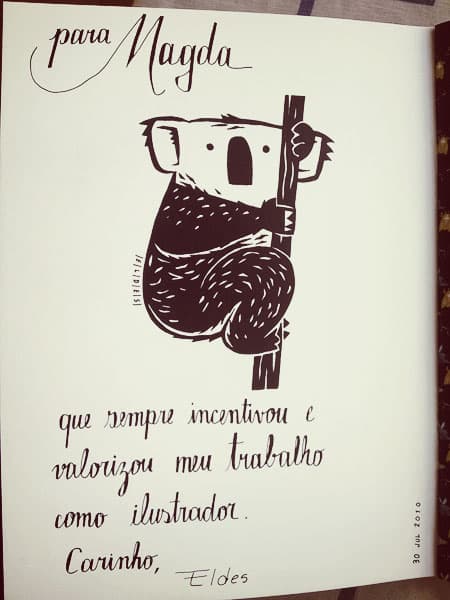 para Magda
|E|L|D|E|S|
que sempre incentivou e
valorizou meu trabalho
como ilustrador.
Carinho,
Eldes
30 JUL 2010